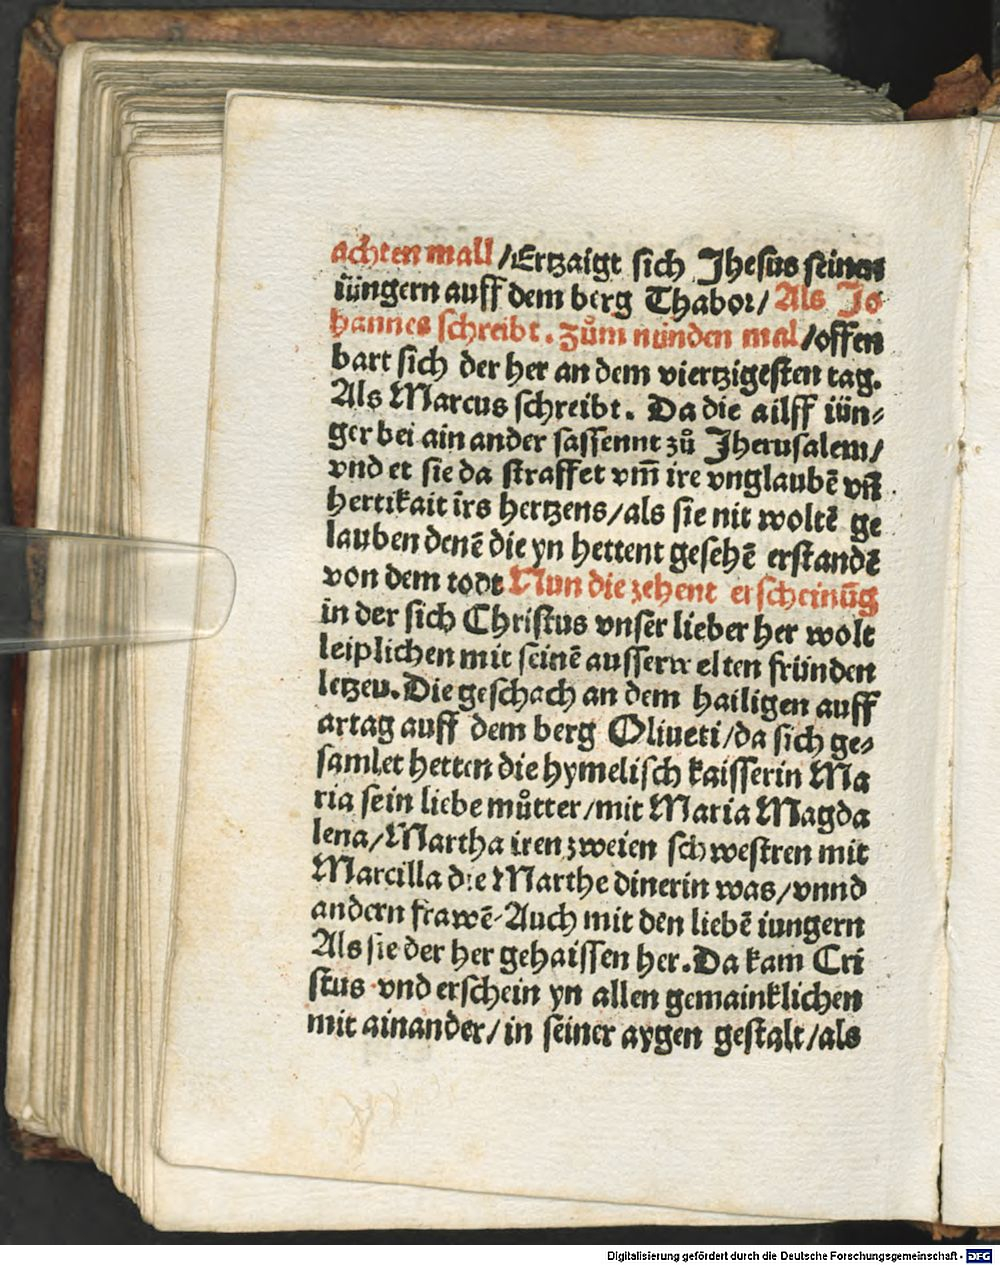 achten mall/Ertzaigt sich Jhesus seinen
iüngern auff dem berg Thabor/Als Jo
hannes schreibt. Zům nünden mal/offen
bart sich der her an dem viertzigesten tag.
Als Marcus schreibt. Da die ailff iün⸗
ger bei ain ander sassennt zů Jherusalem/
vnd et sie da straffet vm̄ ire vnglaubē vn̄
hertikait irs hertzens/als sie nit woltē ge
lauben denē die yn hettent gesehē erstandē
von dem todt Nun die zehent erscheinūg
in der sich Christus vnser lieber her wolt
leiplichen mit seinē ausserwelten fründen
letzen. Die geschach an dem hailigen auff
artag auff dem berg Oliueti/da sich ge⸗
samlet hetten die hymelisch kaisserin Ma
ria sein liebe můtter/mit Maria Magda
lena/Martha iren zweien schwestren mit
Marcilla die Marthe dinerin was/vnnd
andern frawē. Auch mit den liebē iungern
Als sie der her gehaissen her. Da kam Cri
stus vnd erschein yn allen gemainklichen
mit ainander/in seiner aygen gestalt/als
Digitalisierung gefördert durch die Deutsche Forschungsgemeinschaft - DFG